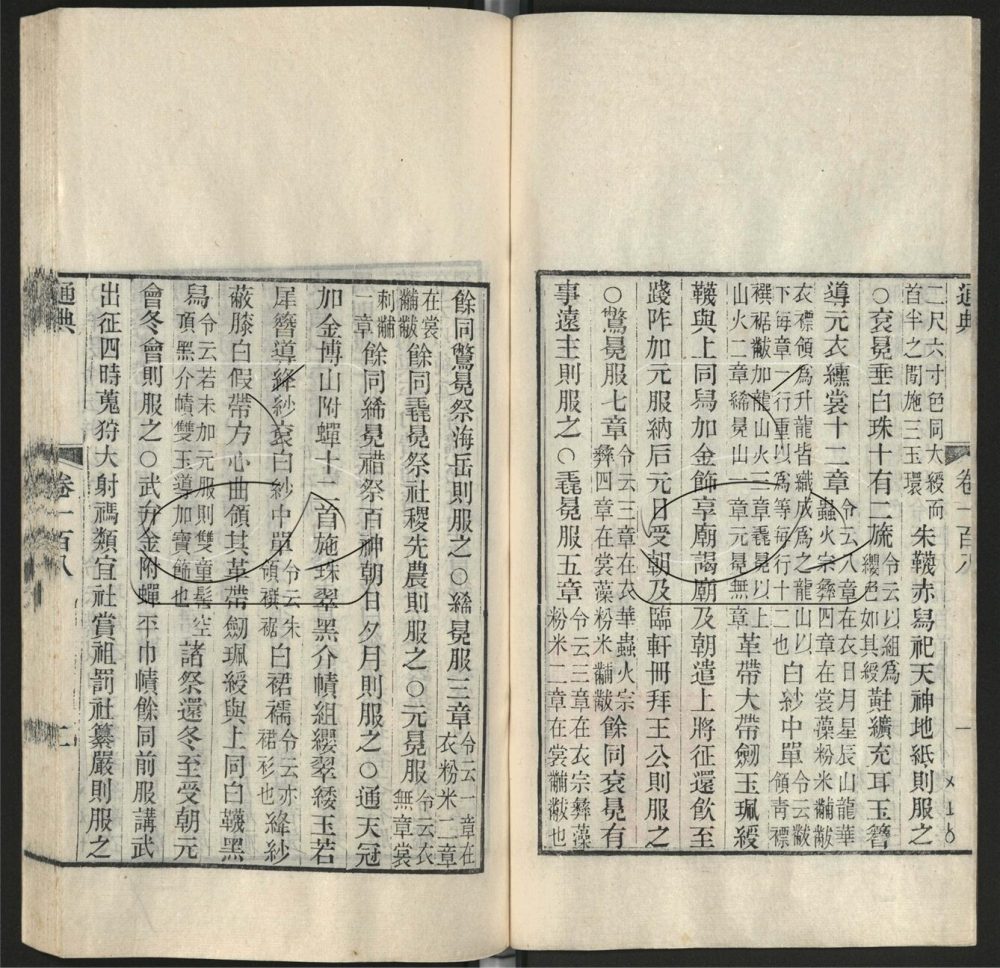 通典 卷一百八 一
二尺六寸色同大綬而首半之閒施三玉環朱韈赤舄祀天神地祇則服之
○衮冕垂白珠十有二旒令云以組爲纓色如其綬黈纊充耳玉簪
導元衣纁裳十二章令云八章在衣日月星辰山龍華蟲火宗彝四章在裳藻粉米黼黻
衣褾領爲升龍皆織成爲之龍山以下每章一行重以爲等每行十二也白紗中單令云黻領青褾
襈裾黻加龍山火三章毳冕以上山火二章絺冕山一章元冕無章革帶大帶劒玉珮綬
韈與上同舄加金飾享廟謁廟及朝遣上將征還飲至
踐阼加元服納后元日受朝及臨軒冊拜王公則服之
○鷩冕服七章令云三章在衣華蟲火宗彝四章在裳藻粉米黼黻餘同衮冕有
事遠主則服之○毳冕服五章令云三章在衣宗彝藻粉米二章在裳黼黻也
餘同鷩冕祭海岳則服之○絺冕服三章令云一章在衣粉米二章
在裳黼黻餘同毳冕祭社稷先農則服之○元冕服令云衣無章裳
刺黼一章餘同絺冕禮祭百神朝日夕月則服之○通天冠
加金博山附蟬十二首施珠翠黑介幘組纓翠緌玉若
犀簪導絳紗衮白紗中單令云朱領襈裾白裙襦令云亦裙衫也絳紗
蔽膝白假帶方心曲領其革帶劒珮綬與上同白韈黑
舄令云若未加元服則雙童髻空頂黑介幘雙玉導加寶飾也諸祭還冬至受朝元
會冬會則服之○武弁金附蟬平巾幘餘同前服講武
出征四時蒐狩大射禡類宜社賞祖罰社纂嚴則服之
通典 卷一百八 二